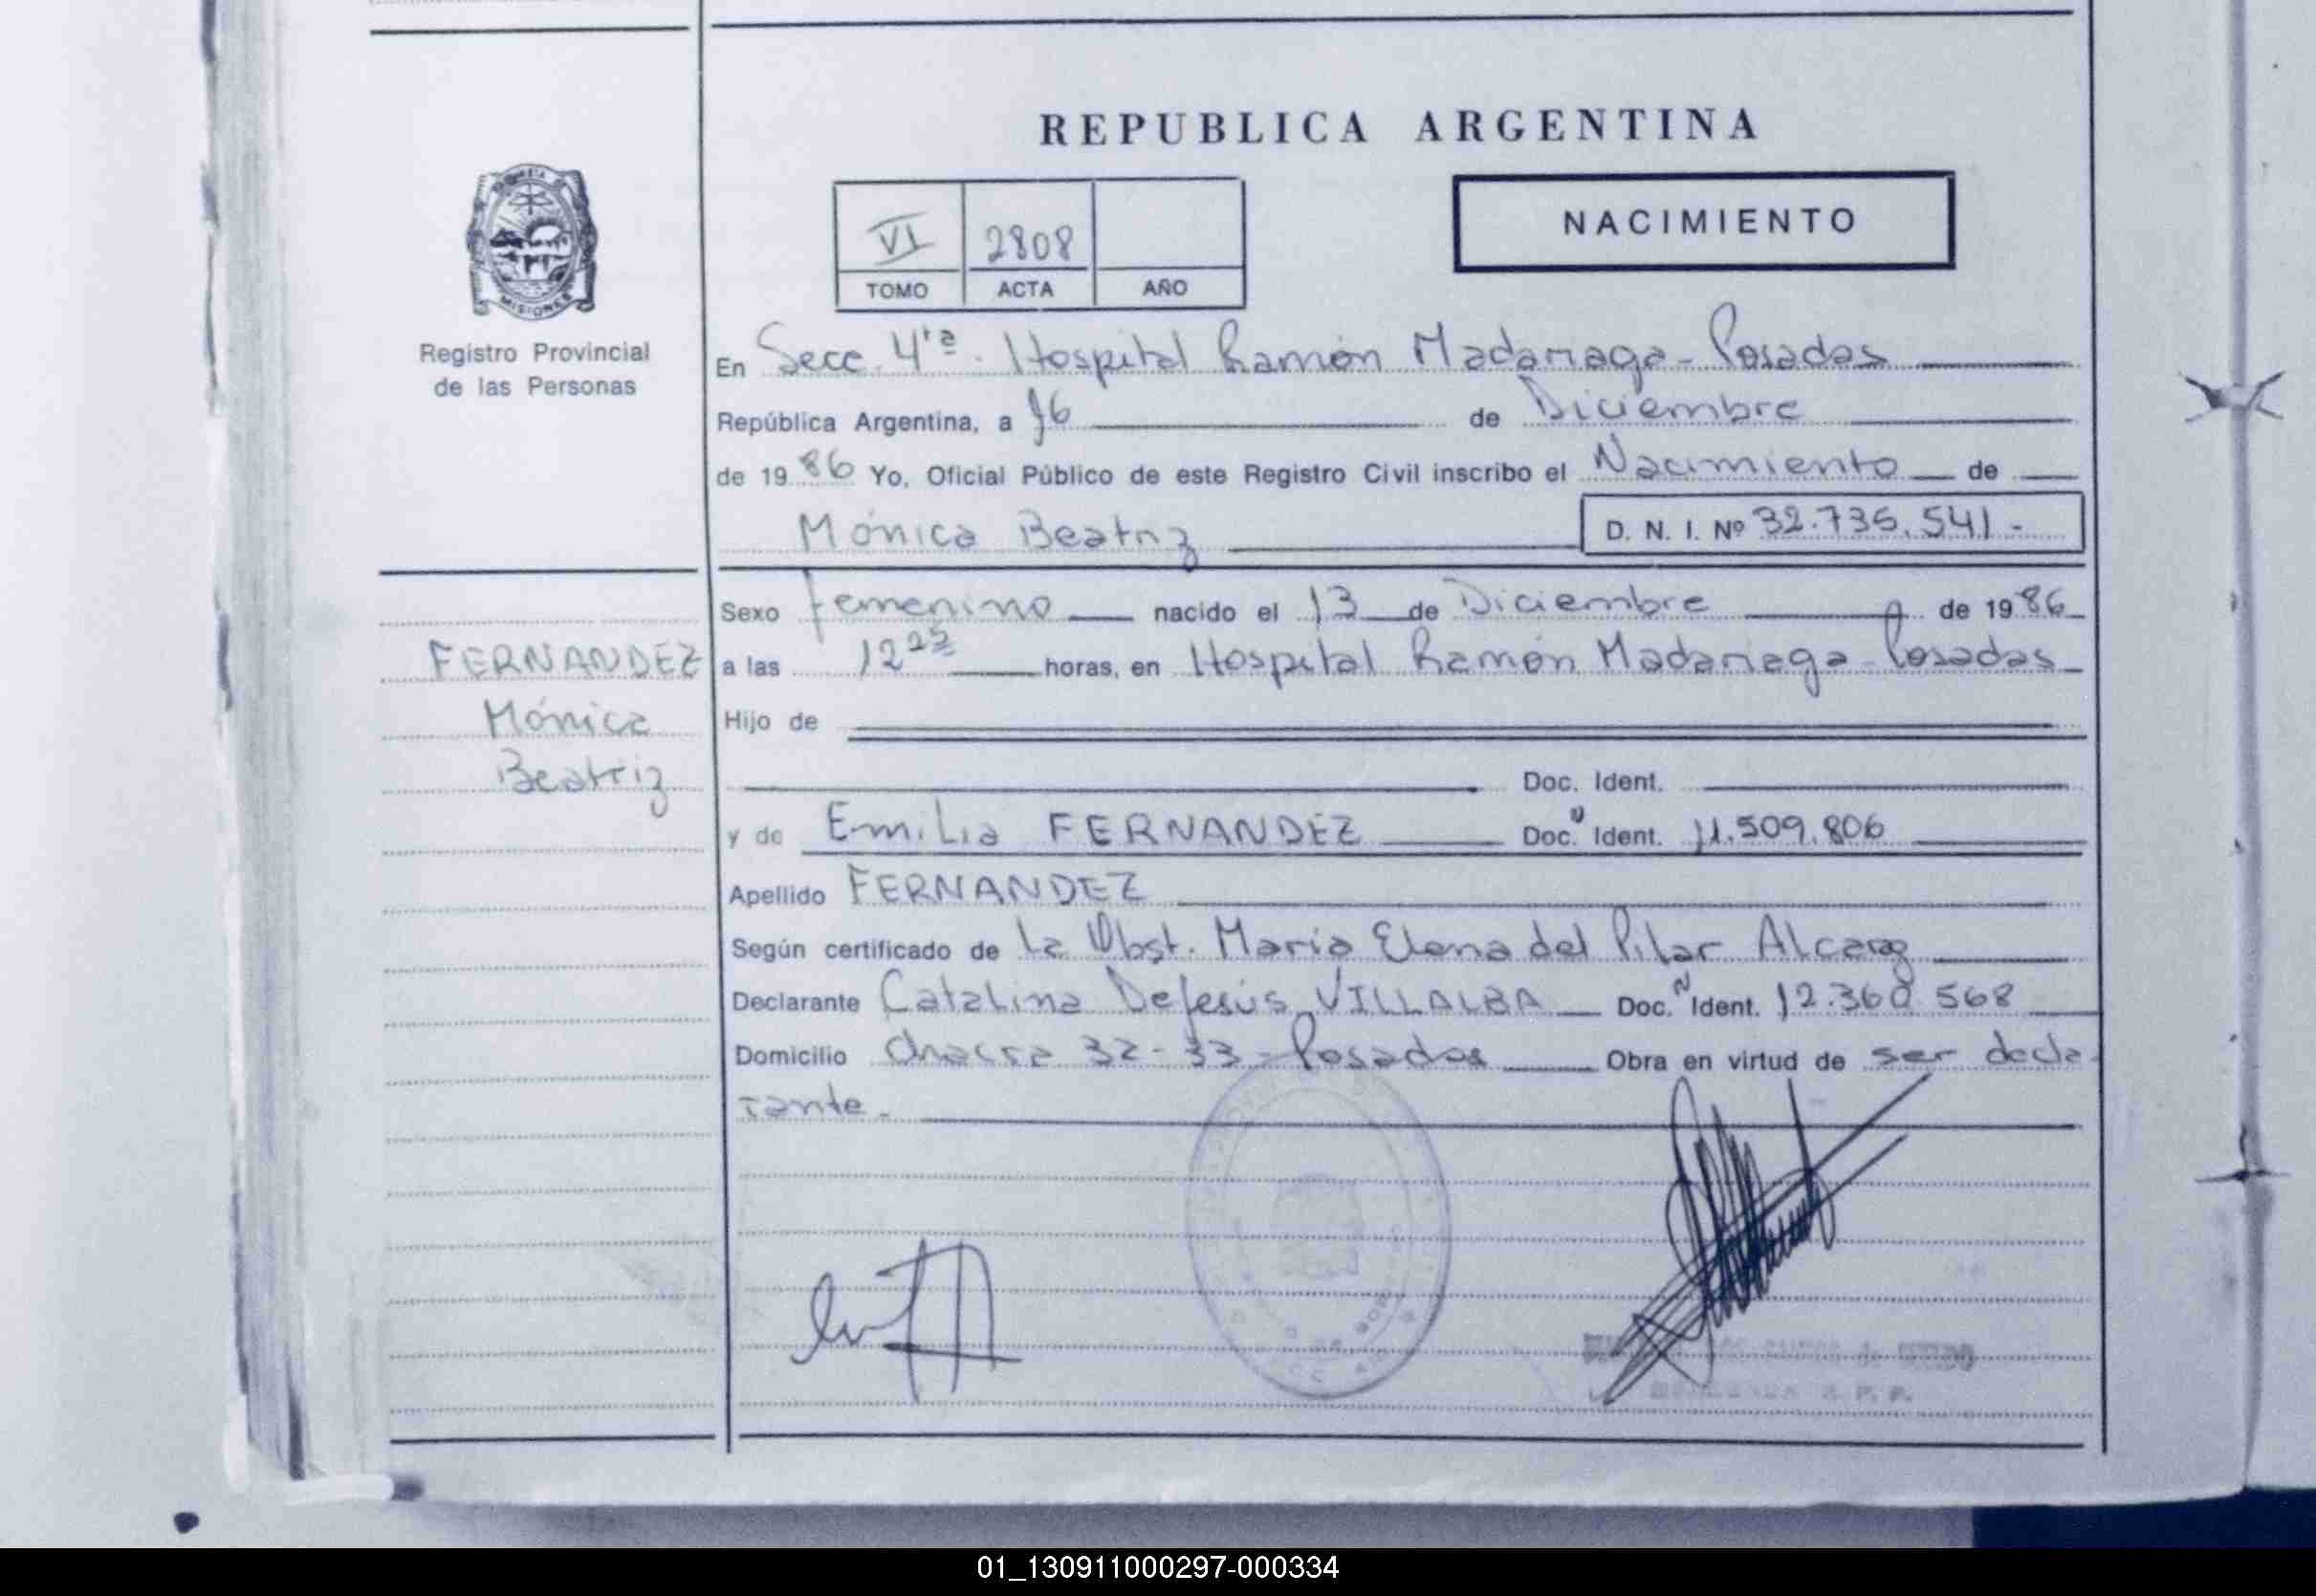 REPUBLICA ARGENTINA
VI 2808
TOMO ACTA AÑO
NACIMIENTO
MISIONES
Registro Provincial
de las Personas
En Secc. 4ta. Hospital Ramón Madariaga - Posadas
República Argentina, a 16 de Diciembre
de 1986 Yo, Oficial Público de este Registro Civil inscribo el Nacimiento de
Mónica Beatriz D. N. I. Nº 32.736.541.-
Sexo femenino nacido el 13 de Diciembre de 1986
a las 12 25 horas, en Hospital Ramón Madariaga - Posadas
FERNANDEZ
Mónica
Beatriz
Hijo de
Doc. Ident.
y de Emilia FERNANDEZ Doc. Ident. 11.509.806
Apellido FERNANDEZ
Según certificado de la Obst. María Elena del Pilar Alcaraz
Declarante Catalina DeJesús VILLALBA Doc. N Ident. 12.360.568
Domicilio Chacra 32-33 - Posadas Obra en virtud de ser decla-
rante.
R. P. P.
01_130911000297-000334